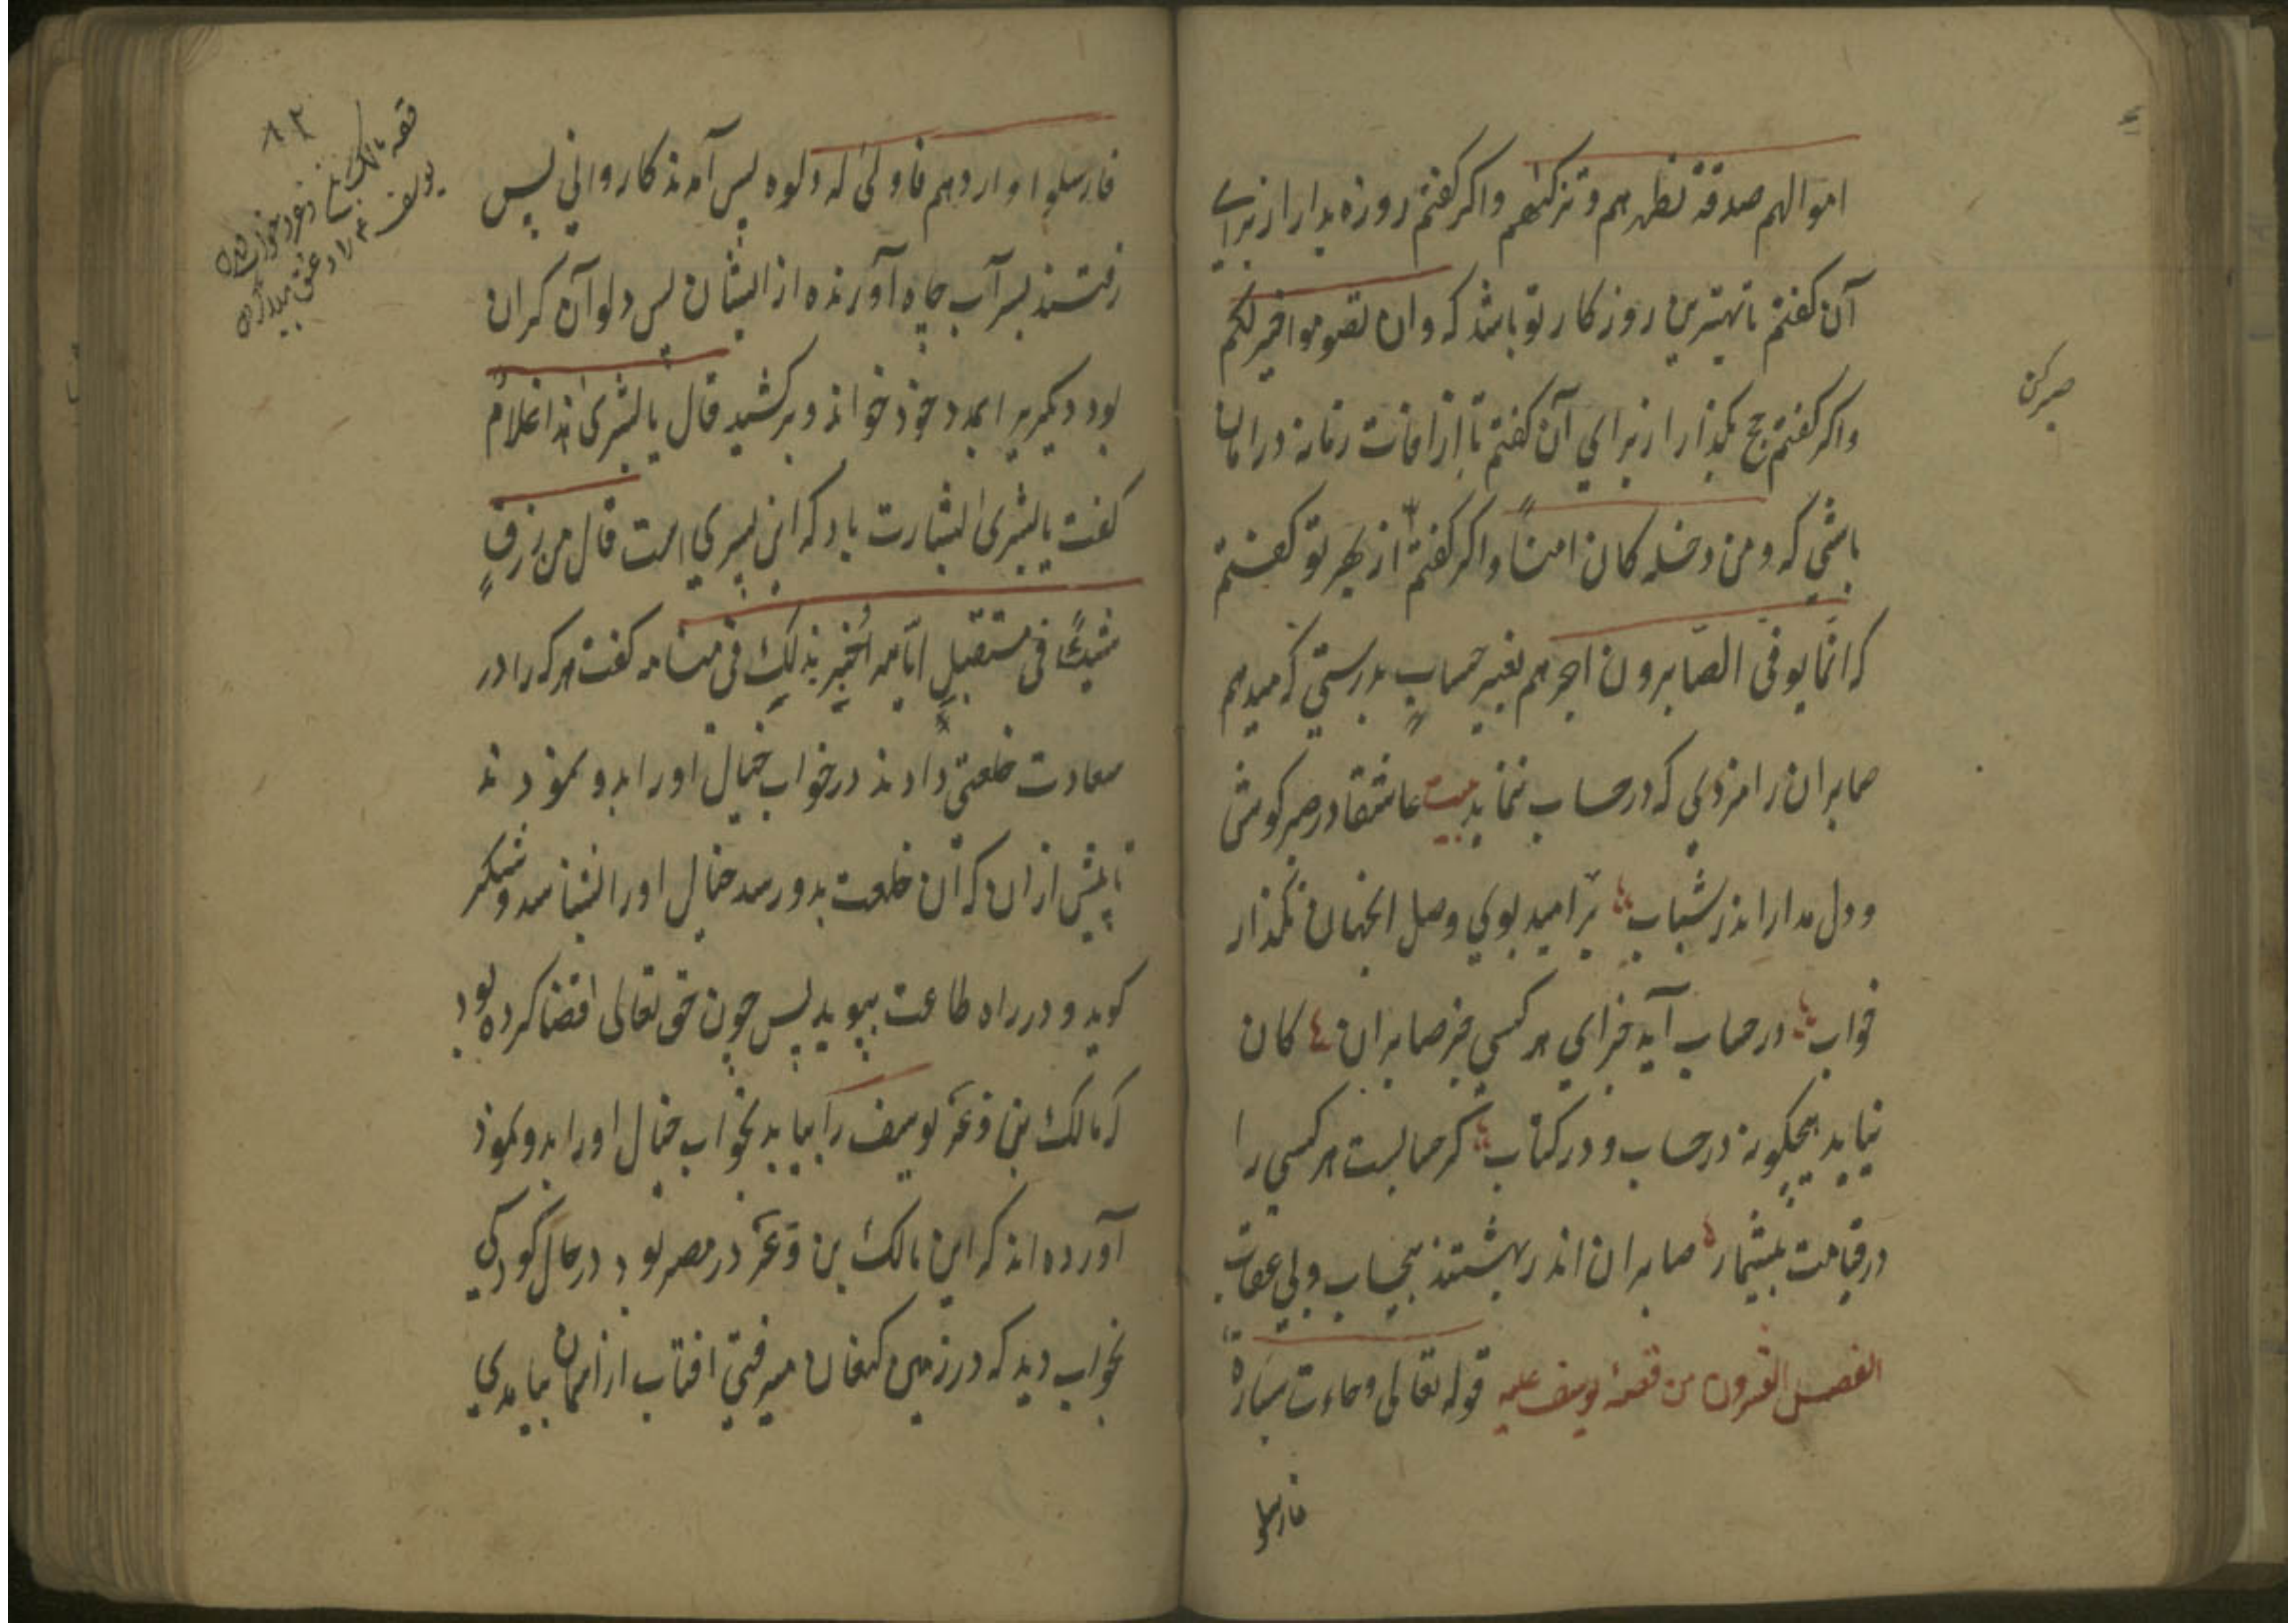 اموالهم صدقة تطهرهم و تزكيهم واكر كفتم روزه بدار از براي
آن كفتم تا بهترين روزكار تو باشد كه وان تصوموا خير لكم
واكر كفتم حج بكذار از براي آن كفتم تا از افات زمانه در امان
باشي كه و من دخله كان امنًا واكر كفتم از بهر تو كفتم
صبر كن
كه انّما يوفى الصّابرون اجرهم بغير حسابٍ بدرستي كه ميدهم
صابران را مزدي كه در حساب نيايد بيت عاشقا در صبر كوش
و دل مدار اندر شتاب بر اميد بوي وصل اينجهان بكذار
خواب در حساب آيد جزاي هر كسي جز صابران كان
نيايد هيچكونه در حساب و در كتاب كر حسابست هر كسي را
در قيامت بيشمار صابران اندر بهشتند بيحساب و بي عقاب
الفصل العشرون من قصة يوسف عليه قوله تعالى و جاءت سيارة
فارسلو
٨٢
قصه مالك بن ذعر خواب
يوسف ع را
فارسلوا واردهم فادلى له دلوه پس آمدند كارواني پس
رفتند بسر آب چاه آورنده از ايشان پس دلو آن كران
بود ديكريرا بمدد خود خواند و بركشيد قال يا بشرى هذا غلامٌ
كفت يا بشرى بشارت باد كه اين پسري است قال من رزق
شيئًا فى مستقبل ايّامه اُخبر بذلك فى منامه كفت هر كه را در
سعادت خلعتي دادند در خواب خيال او را بدو نمودند
تا پيش از ان كه آن خلعت بدو رسد خيال او را بشناسد و شكر
كويد و در راه طاعت بپويد پس چون حق تعالى اقتضا كرده بود
كه مالك بن ذعر يوسف را بيابد بخواب خيال او را بدو نمود
آورده اند كه اين مالك بن ذعر در مصر بود در حال كودكي
بخواب ديد كه در زمين كنعان ميرفتي افتاب از آسمان بيامدي